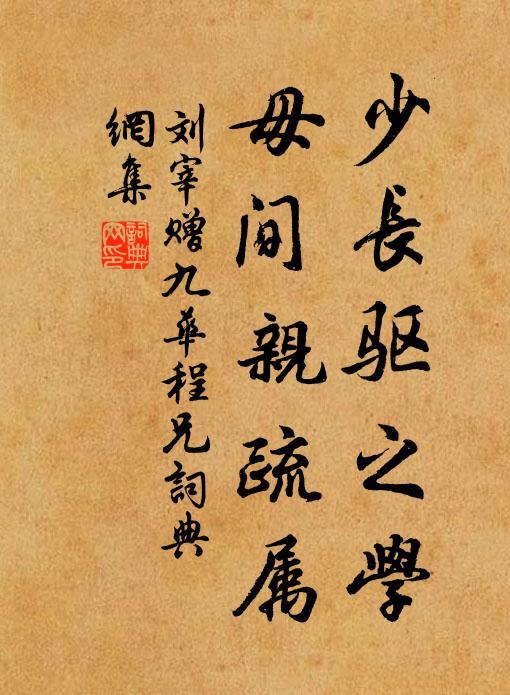 少長驱之學
毋间親疏属
刘宰赠九华程兄詞典
網集
詞典網印